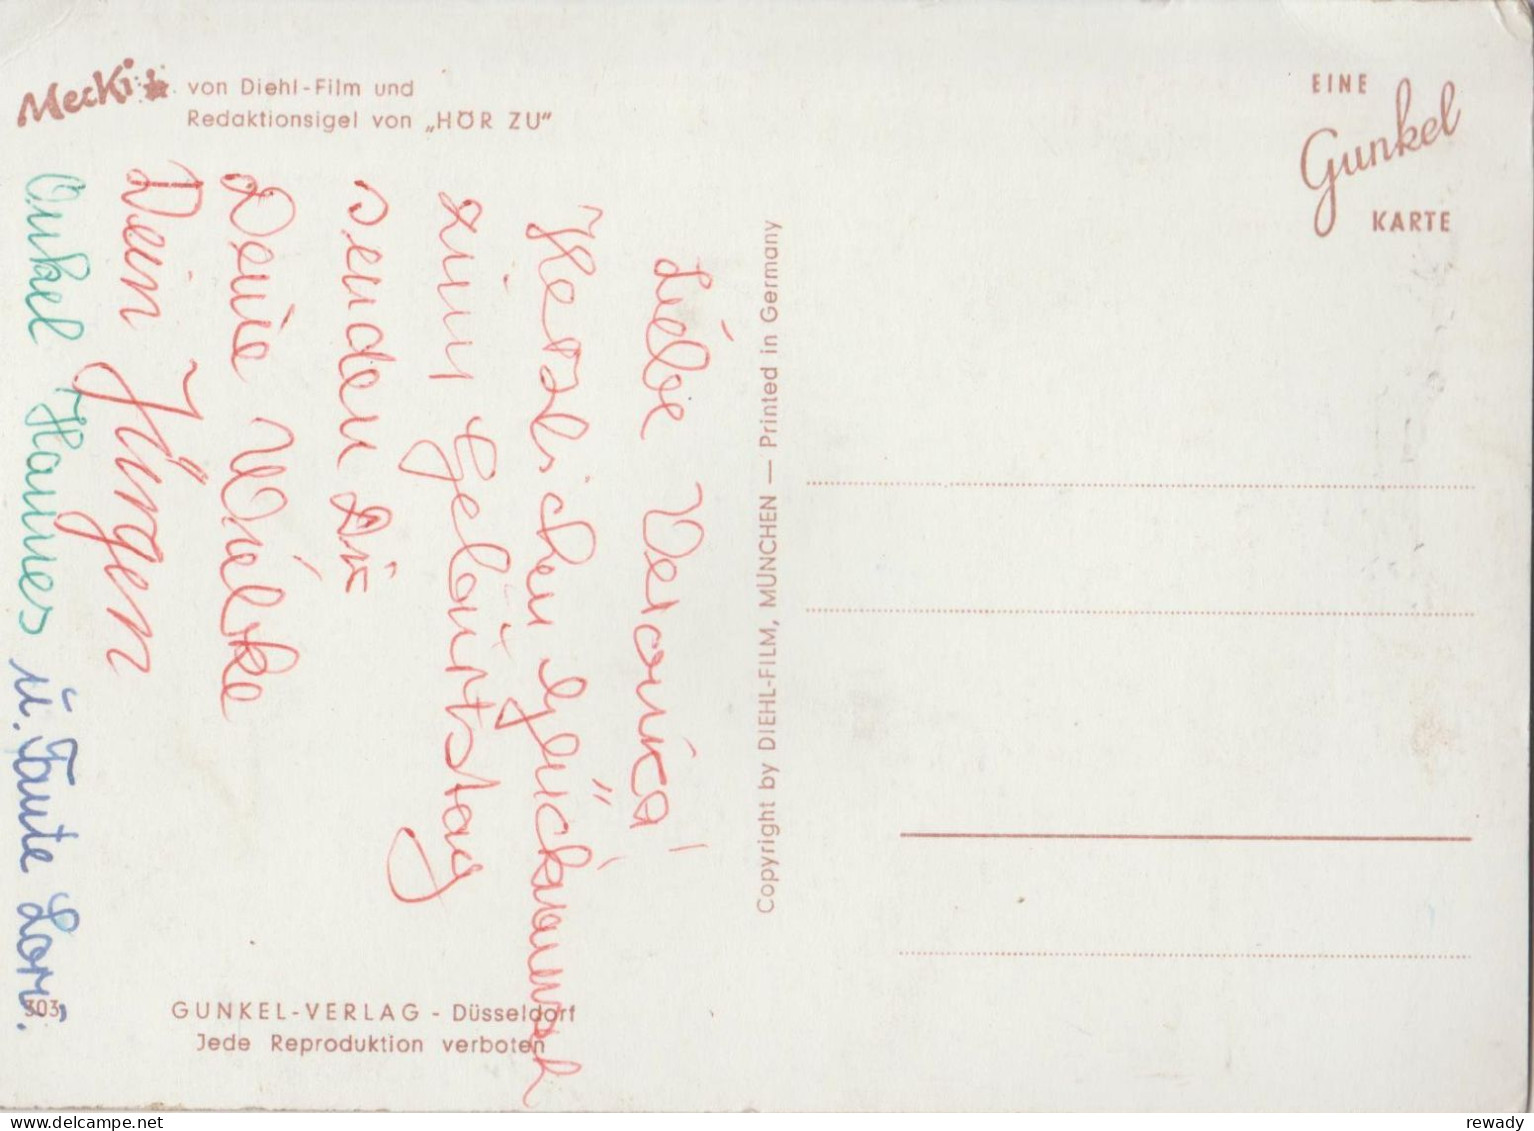 Mecki
von Diehl-Film und
Redaktionsigel von „HÖR ZU"
EINE
Gunkel
KARTE
Liebe Veronika!
Herzlichen Glückwunsch
zum Geburtstag
senden Dir
Deine Wiebke
Dein Jürgen
Onkel Hannes u. Tante Lore.
Copyright by DIEHL-FILM, MÜNCHEN — Printed in Germany
303
GUNKEL-VERLAG - Düsseldorf
Jede Reproduktion verboten
delcampe.net
rewady